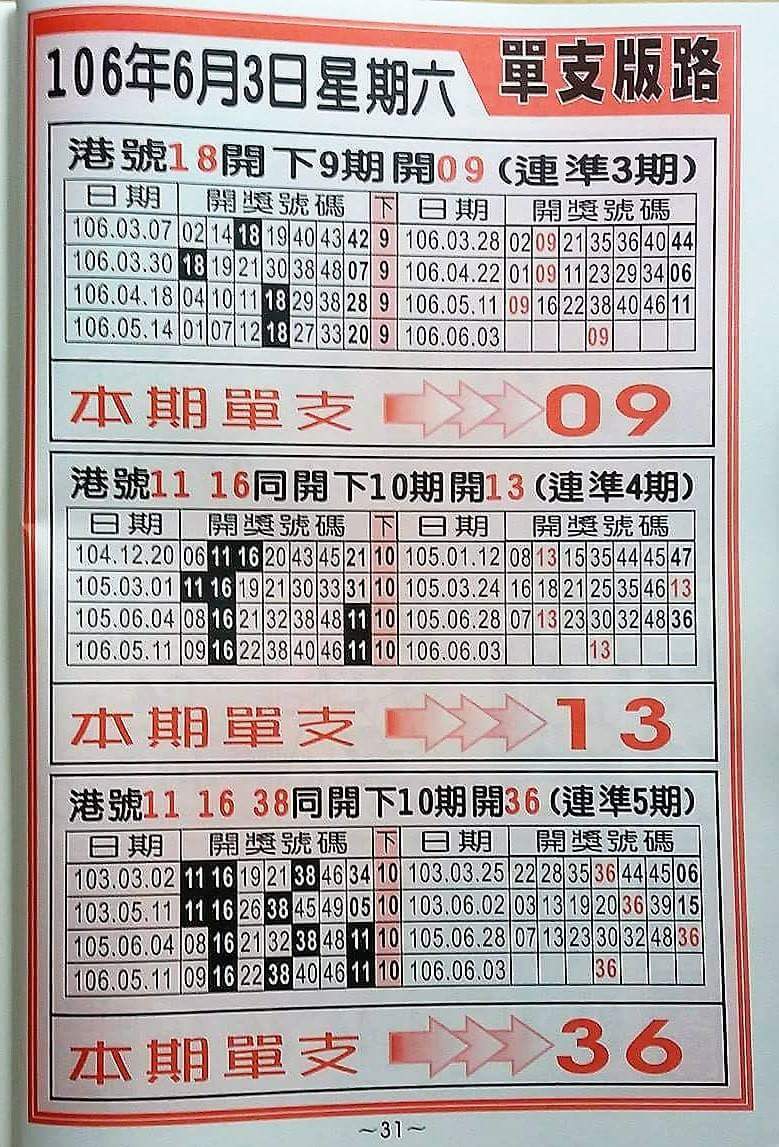 106年6月3日星期六 單支版路
港號18開下9期開09(連準3期)
日期 開獎號碼 下 日期 開獎號碼
106.03.07 02 14 18 19 40 43 42 9 106.03.28 02 09 21 35 36 40 44
106.03.30 18 19 21 30 38 48 07 9 106.04.22 01 09 11 23 29 34 06
106.04.18 04 10 11 18 29 38 28 9 106.05.11 09 16 22 38 40 46 11
106.05.14 01 07 12 18 27 33 20 9 106.06.03 09
本期單支 09
港號11 16同開下10期開13(連準4期)
日期 開獎號碼 下 日期 開獎號碼
104.12.20 06 11 16 20 43 45 21 10 105.01.12 08 13 15 35 44 45 47
105.03.01 11 16 19 21 30 33 31 10 105.03.24 16 18 21 25 35 46 13
105.06.04 08 16 21 32 38 48 11 10 105.06.28 07 13 23 30 32 48 36
106.05.11 09 16 22 38 40 46 11 10 106.06.03 13
本期單支 13
港號11 16 38同開下10期開36(連準5期)
日期 開獎號碼 下 日期 開獎號碼
103.03.02 11 16 19 21 38 46 34 10 103.03.25 22 28 35 36 44 45 06
103.05.11 11 16 26 38 45 49 05 10 103.06.02 03 13 19 20 36 39 15
105.06.04 08 16 21 32 38 48 11 10 105.06.28 07 13 23 30 32 48 36
106.05.11 09 16 22 38 40 46 11 10 106.06.03 36
本期單支 36
~31~